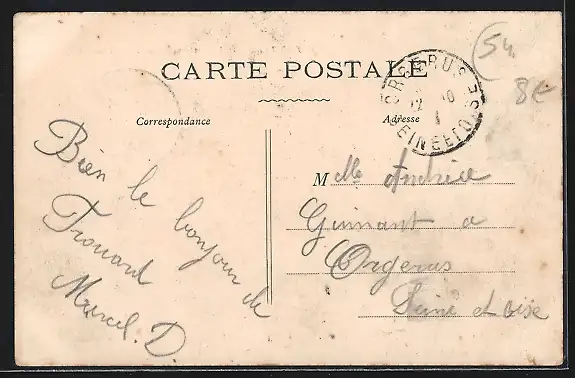 CARTE POSTALE
Correspondance
Adresse
ORGERUS
12
SEINE ET OISE
54
8€
Bien le bonjour de
Trouard
Marcel. D
Mlle Andrée
à
Orgerus
Seine et Oise